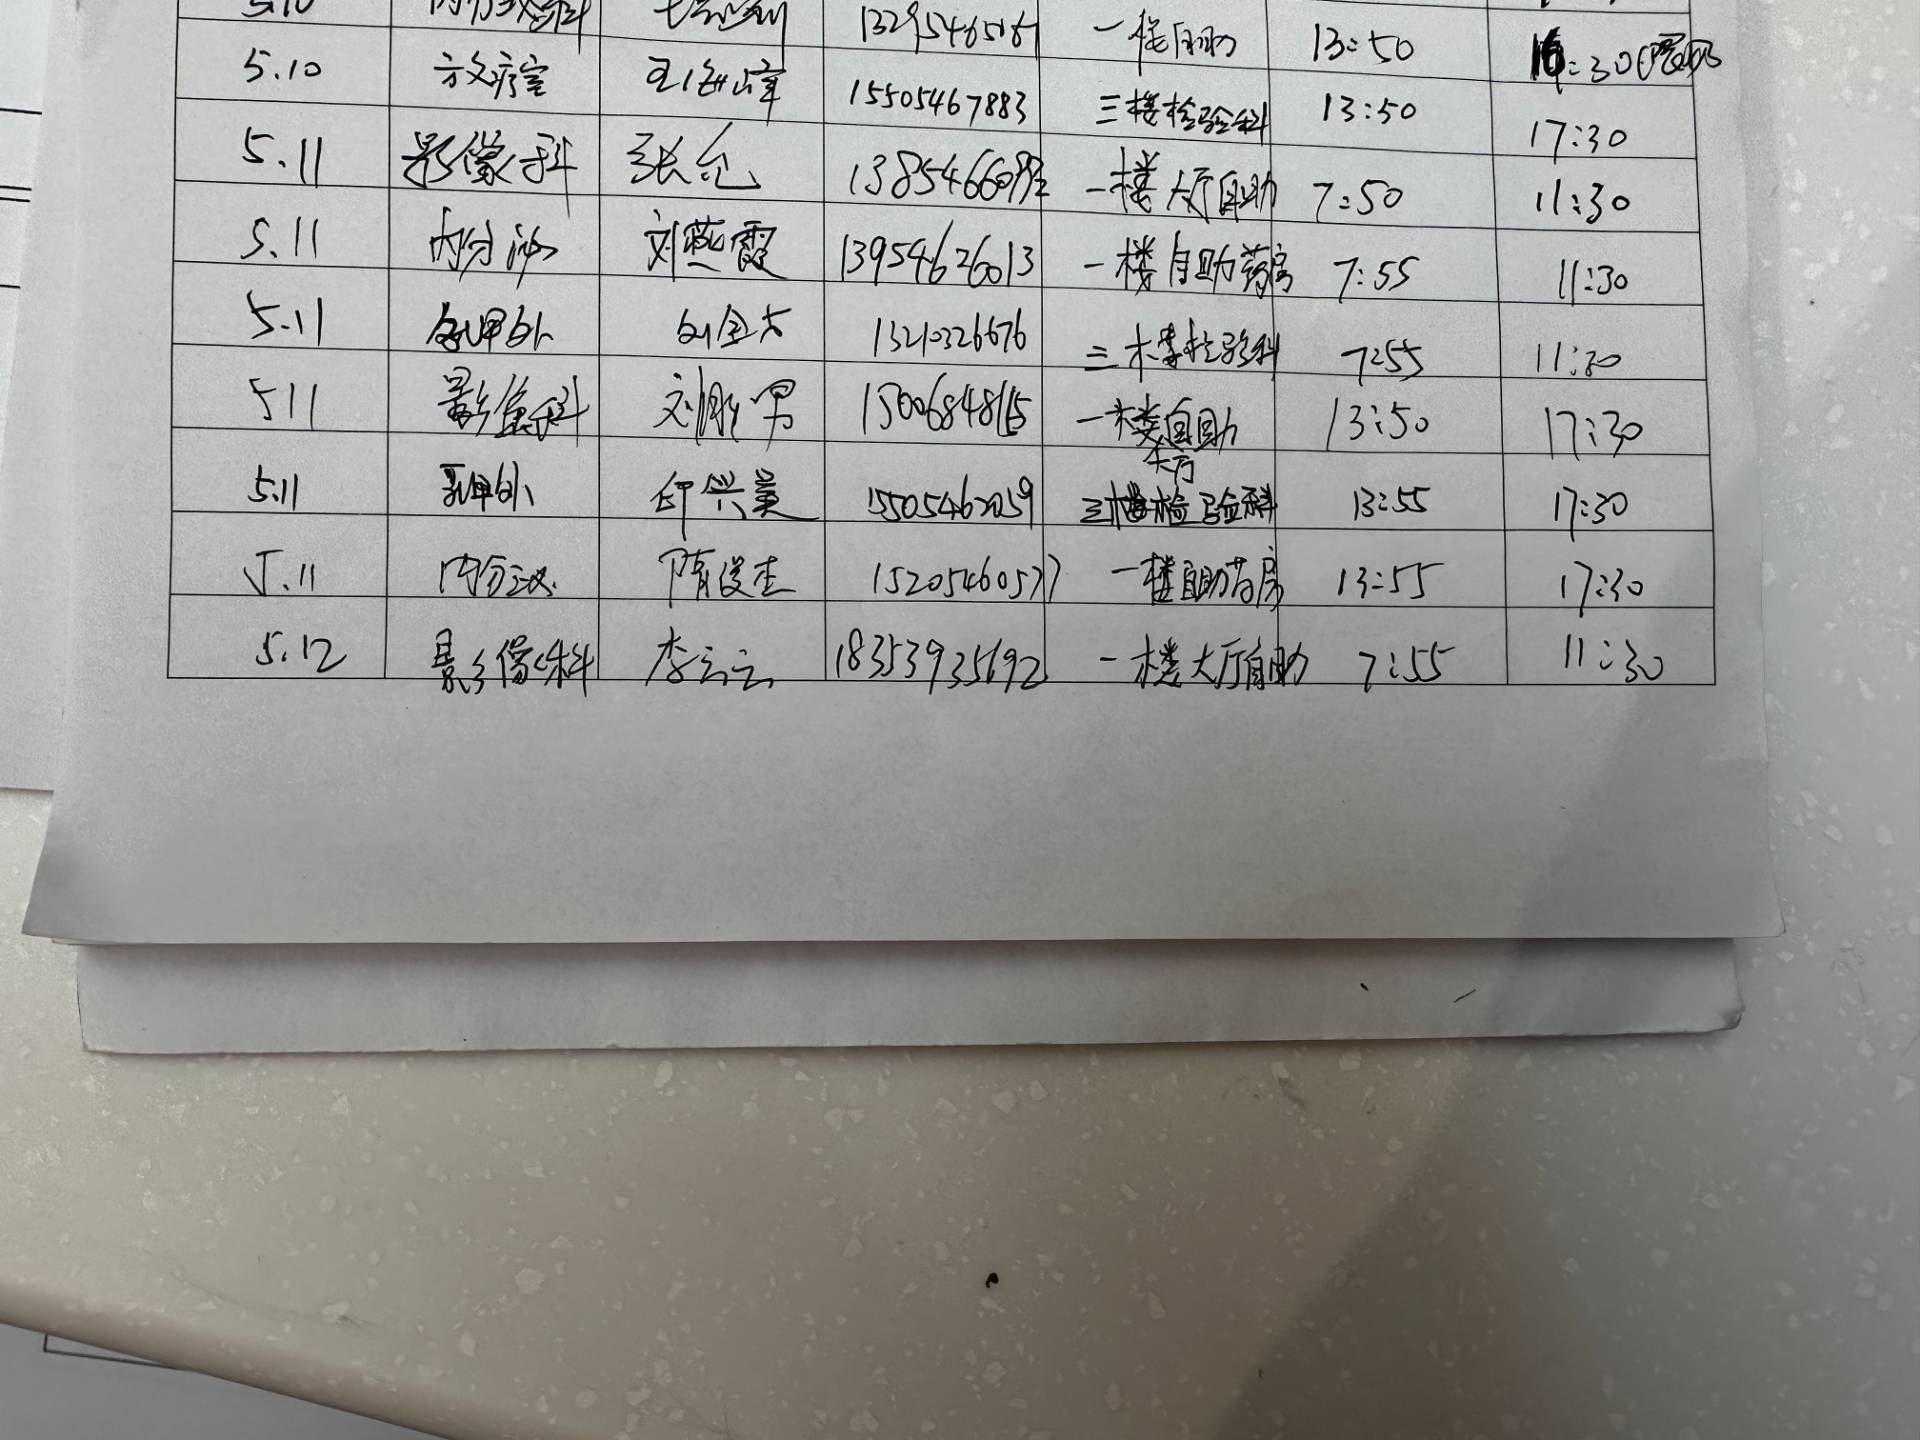 5.10 内分泌科 13295465161 一楼自助 13:50 16:30
5.10 放疗室 王海峰 15505467883 三楼检验科 13:50 17:30
5.11 影像科 张 1385466 一楼大厅自助 7:50 11:30
5.11 内分泌 刘燕霞 13954626013 一楼自助药房 7:55 11:30
5.11 乳甲外 13210326676 三楼检验科 7:55 11:30
5.11 影像科 刘 男 15006848115 一楼自助 13:50 17:30
大厅
5.11 乳甲外 印兴美 15505462059 三楼检验科 13:55 17:30
5.11 内分泌 隋俊杰 15205460577 一楼自助药房 13:55 17:30
5.12 影像科 李云云 18353935692 一楼大厅自助 7:55 11:30